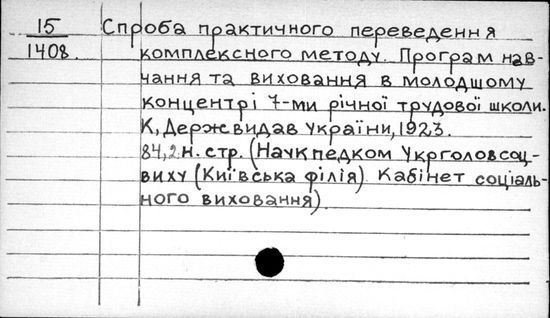 15 Спроба практичного переведення
1408. комплексного методу. Програм нав-
чання та виховання в молодшому
концентрі 7-ми річної трудової школи.
К, Держвидав України, 1923.
84,2 н. стр. (Наукпедком Укрголовсоц-
виху (Київська філія) Кабінет соціаль-
ного виховання).